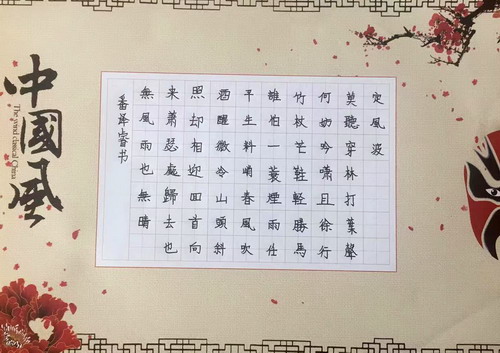 定風波
莫聽穿林打葉聲
何妨吟嘯且徐行
竹杖芒鞋輕勝馬
誰怕一蓑煙雨任
平生料峭春風吹
酒醒微冷山頭斜
照却相迎回首向
来蕭瑟處歸去也
無風雨也無晴
睿书
中國風
The wind classical China